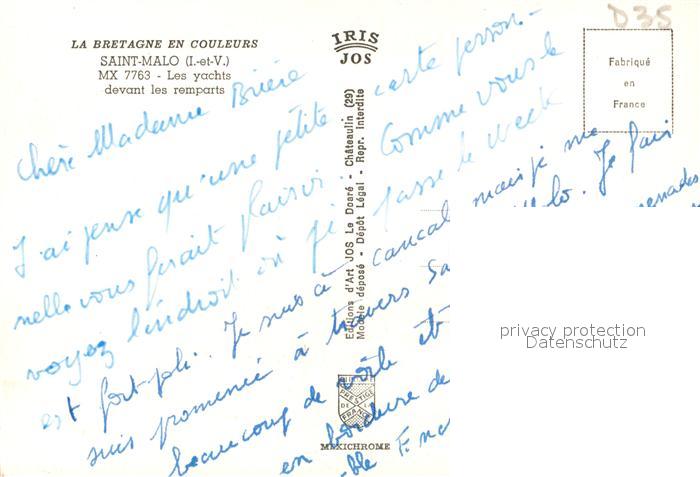 LA BRETAGNE EN COULEURS
SAINT-MALO (I.-et-V.)
MX 7763 - Les yachts
devant les remparts
IRIS
JOS
D35
Fabriqué
en
France
Editions d'Art JOS Le Doaré - Châteaulin (29)
Modèle déposé - Dépôt Légal - Repr. Interdite
PRESTIGE
DE
FRANCE
MEXICHROME
Chère Madame Brière
J'ai pense qu'une petite carte person-
nelle vous ferait plaisir. Comme vous le
voyez l'endroit où je passe le week
est fort joli. Je suis à cancal mais je me
suis promenée à travers Sa lo. Je fais
beaucoup de voile et menades
en bordure de
ble
privacy protection
Datenschutz